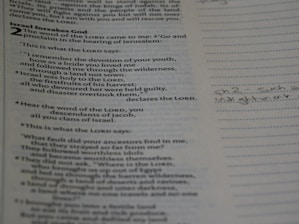 land, its priests and the people of the land
Israel Forsakes God
2 The word of the LORD came to me: "Go and
proclaim in the hearing of Jerusalem:
"This is what the LORD says:
"'I remember the devotion of your youth,
how as a bride you loved me
and followed me through the wilderness,
through a land not sown.
Israel was holy to the LORD,
the firstfruits of his harvest;
all who devoured her were held guilty,
and disaster overtook them,'"
declares the LORD.
Hear the word of the LORD, you
descendants of Jacob,
all you clans of Israel.
This is what the LORD says:
"What fault did your ancestors find in me,
that they strayed so far from me?
They followed worthless idols
and became worthless themselves.
They did not ask, 'Where is the LORD,
who brought us up out of Egypt
and led us through the barren wilderness,
through a land of deserts and ravines,
a land of drought and utter darkness,
a land where no one travels and no one
lives?'
I brought you into a fertile land
to eat its fruit and rich produce.
But you came and defiled my land